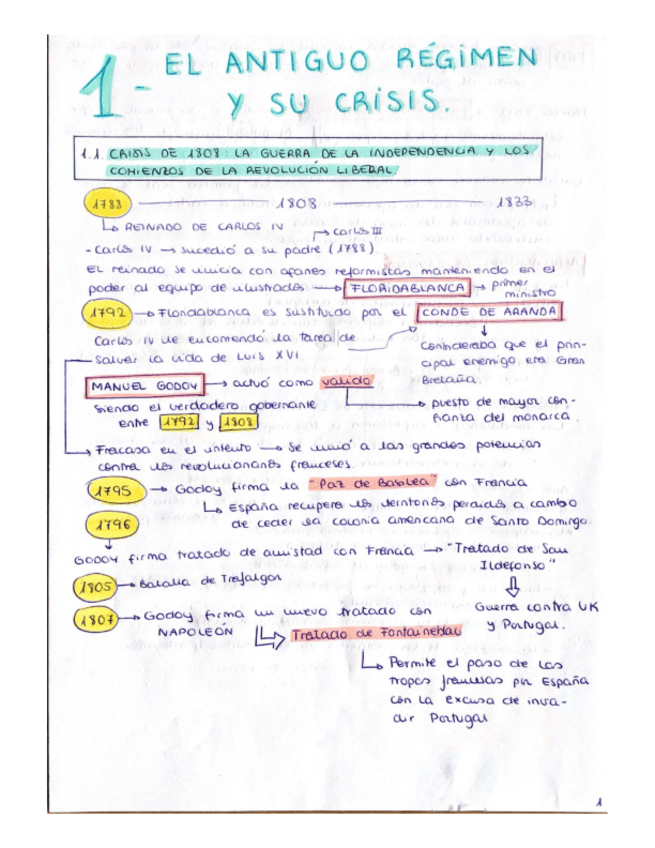 1- EL ANTIGUO RÉGIMEN
Y SU CRISIS.
1.1. CRISIS DE 1808: LA GUERRA DE LA INDEPENDENCIA Y LOS
COMIENZOS DE LA REVOLUCIÓN LIBERAL
1788 1808 1833
REINADO DE CARLOS IV
Carlos III
- Carlos IV → sucedió a su padre (1788)
EL reinado se inicia con afanes reformistas manteniendo en el
poder al equipo de ilustrados → FLORIDABLANCA → primer
ministro
1792 → Floridablanca es sustituido por el CONDE DE ARANDA
Carlos IV le encomendó la tarea de
salvar la vida de LUIS XVI
Consideraba que el prin-
cipal enemigo, era Gran
Bretaña.
MANUEL GODOY → actuó como valido
siendo el verdadero gobernante
entre 1792 y 1808
puesto de mayor con-
fianza del monarca.
Fracasa en el intento → Se unió a las grandes potencias
contra los revolucionarios franceses.
1795 → Godoy firma la "Paz de Basilea" con Francia
España recupera los territorios perdidos a cambio
de ceder la colonia americana de Santo Domingo.
1796
GODOY firma tratado de amistad con Francia → "Tratado de San
Ildefonso"
1805 → Batalla de Trafalgar
Guerra contra UK
y Portugal.
1807 → Godoy firma un nuevo tratado con
NAPOLEÓN
Tratado de Fontainebleau
Permite el paso de las
tropas francesas por España
con la excusa de inva-
dir Portugal
1